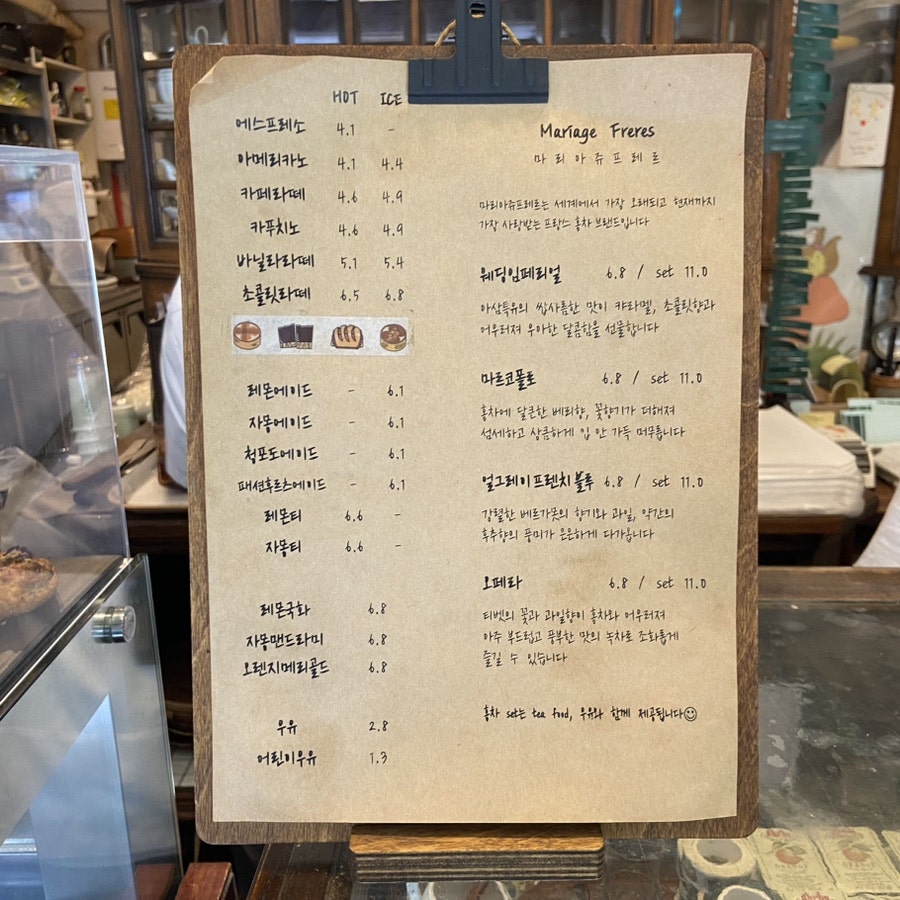 HOT ICE
에스프레소 4.1 -
아메리카노 4.1 4.4
카페라떼 4.6 4.9
카푸치노 4.6 4.9
바닐라라떼 5.1 5.4
초콜릿라떼 6.5 6.8
레몬에이드 - 6.1
자몽에이드 - 6.1
청포도에이드 - 6.1
패션후르츠에이드 - 6.1
레몬티 6.6 -
자몽티 6.6 -
레몬국화 6.8
자몽맨드라미 6.8
오렌지메리골드 6.8
우유 2.8
어린이우유 1.3
Mariage Freres
마리아쥬프레르
마리아쥬프레르는 세계에서 가장 오래되고 현재까지
가장 사랑받는 프랑스 홍차 브랜드입니다
웨딩임페리얼 6.8 / set 11.0
아삼특유의 쌉사름한 맛이 캬라멜, 초콜릿향과
어우러져 우아한 달콤함을 선물합니다
마르코폴로 6.8 / set 11.0
홍차에 달큰한 베리향, 꽃향기가 더해져
섬세하고 상큼하게 입 안 가득 머무릅니다
얼그레이 프렌치 블루 6.8 / set 11.0
강렬한 베르가못의 향기와 과일, 약간의
후추향의 풍미가 은은하게 다가옵니다
오페라 6.8 / set 11.0
티벳의 꽃과 과일향이 홍차와 어우러져
아주 부드럽고 풍부한 맛의 녹차로 조화롭게
즐길 수 있습니다
홍차 set는 tea food, 우유와 함께 제공됩니다